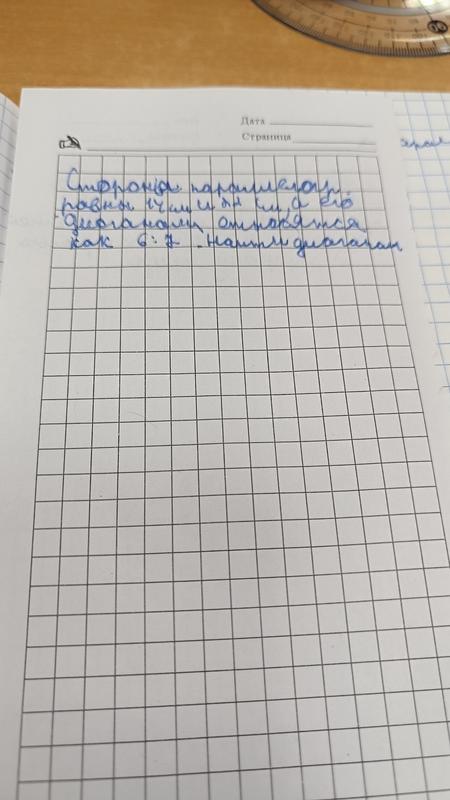 Дата
Страница
Стороны параллелогр.
равны 14 см и см, а его
диагонали относятся
как 6:7. Найти диагонал